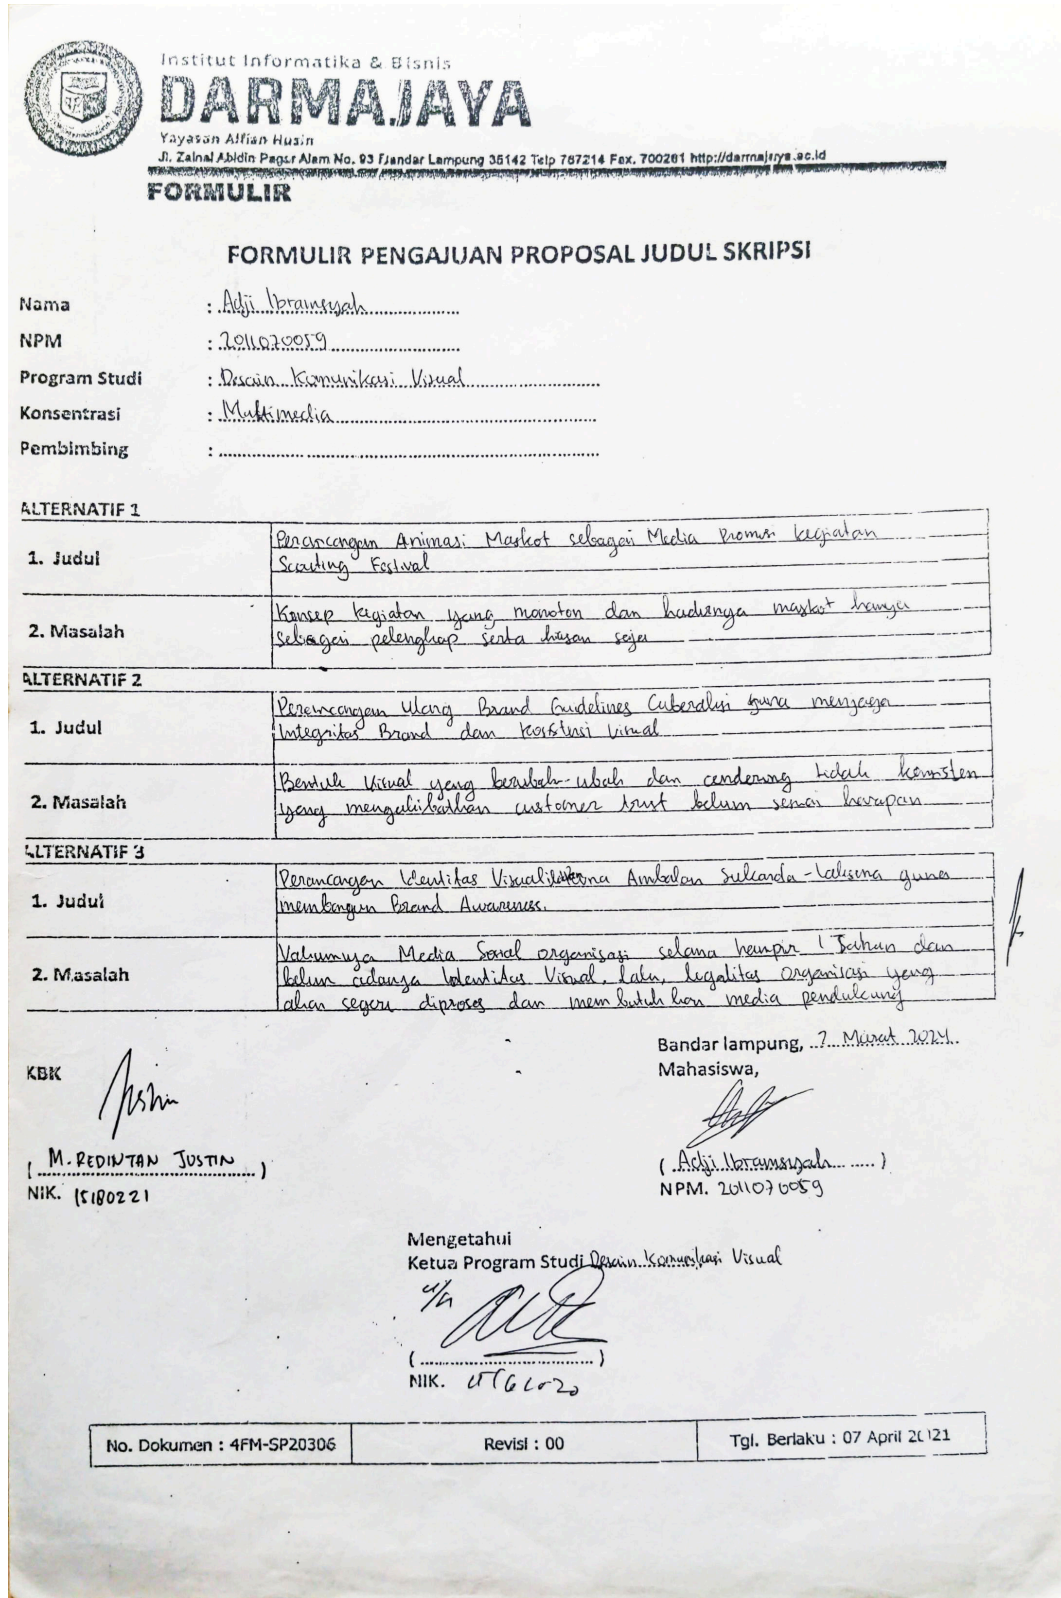 Institut Informatika & Bisnis
DARMAJAYA
Yayasan Alfian Husin
Jl. Zainal Abidin Pagar Alam No. 93 Bandar Lampung 35142 Telp 787214 Fax. 700261 http://darmajaya.ac.id
FORMULIR
FORMULIR PENGAJUAN PROPOSAL JUDUL SKRIPSI
Nama : Adji Ibramsyah
NPM : 2011070059
Program Studi : Desain Komunikasi Visual
Konsentrasi : Multimedia
Pembimbing :
ALTERNATIF 1
1. Judul
Perancangan Animasi Maskot sebagai Media Promosi kegiatan
Scouting Festival
2. Masalah
Konsep kegiatan yang monoton dan hadirnya maskot hanya
sebagai pelengkap serta hiasan saja
ALTERNATIF 2
1. Judul
Perancangan Ulang Brand Guidelines guna menjaga
Integritas Brand dan Visual
2. Masalah
Bentuk Visual yang berubah-ubah dan cenderung tidak konsisten
yang mengakibatkan customer trust belum sesuai harapan
ALTERNATIF 3
1. Judul
Perancangan Identitas Visual Ambalan Sukanda-Laksma guna
membangun Brand Awareness.
2. Masalah
Vakumnya Media Sosial organisasi selama hampir 1 Tahun dan
belum adanya Identitas Visual, lalu, legalitas organisasi yang
akan segera diproses dan membutuhkan media pendukung
Bandar lampung, 7 Maret 2024
Mahasiswa,
KBK
( M. REDINTAN JUSTIN )
NIK. 15180221
( Adji Ibramsyah )
NPM. 2011070059
Mengetahui
Ketua Program Studi Desain Komunikasi Visual
( )
NIK.
No. Dokumen : 4FM-SP20306
Revisi : 00
Tgl. Berlaku : 07 April 2021